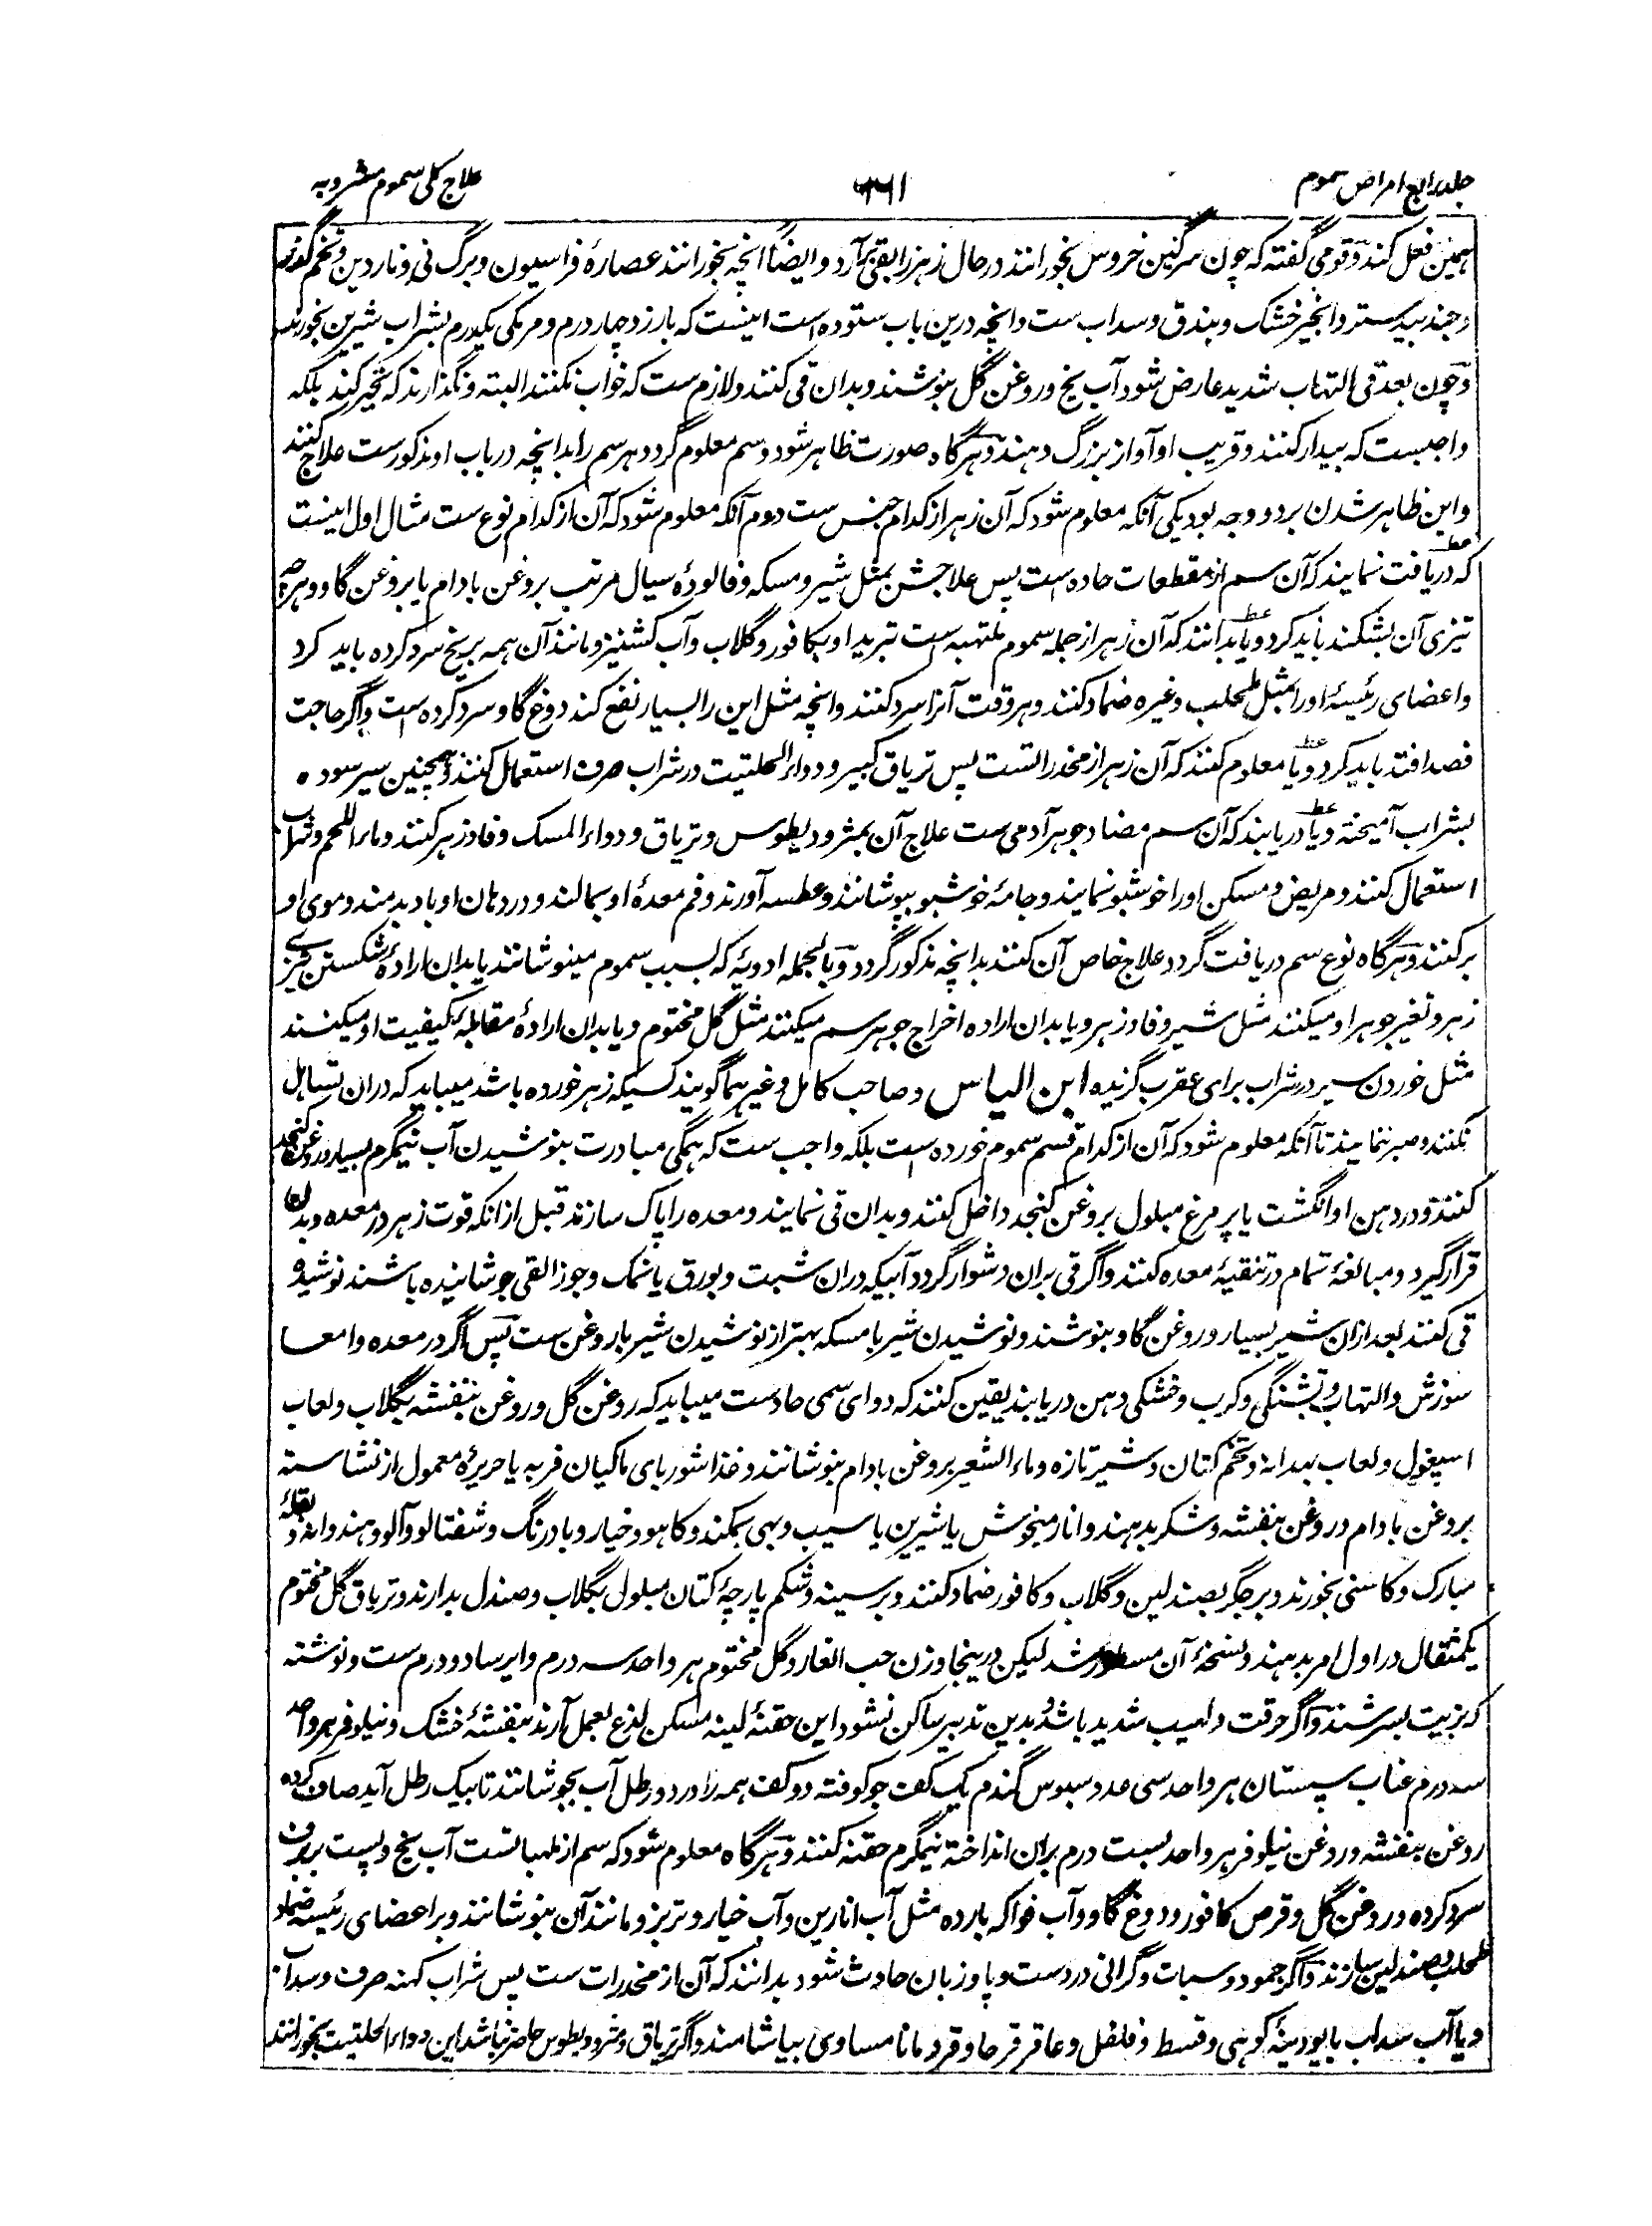 جلد رابع امراض سموم
۶۶۱
علاج کلی سموم مشروبه
همین فعل کند و قومی گفته که چون سرگین خروس بخورانند در حال زهر را بقی برآرد و ایضاً آنچه بخورانند عصارهٔ فراسیون و برگ نی و ناردین و تخم گزر
و جند بیدستر و انجیر خشک و بندق و سداب ست و آنچه درین باب ستوده است اینست که بارزد چهار درم و مرمکی یکدرم بشراب شیرین بخورند
و چون بعد قی التهاب شدید عارض شود آب یخ و روغن گل بنوشند و بدان قی کنند و لازم ست که خواب نکنند البته و نگذارند که تحیر کند بلکه
واجبست که بیدار کنند و قریب او آواز بزرگ دهند و هرگاه صورت ظاهر شود و سم معلوم گردد هر سم را بدانچه در باب او مذکورست علاج کنند
و این ظاهر شدن بر دو وجه بود یکی آنکه معلوم شود که آن زهر از کدام جنس ست دوم آنکه معلوم شود که آن از کدام نوع ست مثال اول اینست
که دریافت نمایند که آن سم از مقطعات حاده است پس علاجش بمثل شیر و مسکه و فالودهٔ سیال مرتب بروغن بادام یا بروغن گاو و هرچه
تیزی آن بشکند باید کرد و یا بدانند که آن زهر از جمله سموم ملتهبه است تبرید او بکافور و گلاب و آب کشنیز و مانند آن همه بر یخ سرد کرده باید کرد
و اعضای رئیسهٔ او را بمثل طحلب و غیره ضماد کنند و هر وقت آنرا سرد کنند و آنچه مثل این را بسیار نفع کند دوغ گاو سرد کرده است و اگر حاجت
فصد افتد باید کرد و یا معلوم کنند که آن زهر از مخدراتست پس تریاق کبیر و دواء الحلتیت در شراب صرف استعمال کنند و همچنین سیر سوده
بشراب آمیخته و یا دریابند که آن سم مضاد جوهر آدمی ست علاج آن بمثرودیطوس و تریاق و دواء المسک و فادزهر کنند و ماء اللحم و شراب
استعمال کنند و مریض و مسکن او را خوشبو نمایند و جامهٔ خوشبو بپوشانند و عطسه آورند و فم معدهٔ او بمالند و در دهان او باد بدمند و موی او
برکنند و هرگاه نوع سم دریافت گردد علاج خاص آن کنند بدانچه مذکور گردد و بالجمله ادویهٔ که بسبب سموم مینوشانند یا بدان ارادهٔ شکستن تیزی
زهر و تغیر جوهر او میکنند مثل شیر و فادزهر و یا بدان اراده اخراج جوهر سم میکنند مثل گل مختوم و یا بدان ارادهٔ مقابله کیفیت او میکنند
مثل خوردن سیر در شراب برای عقرب گزیده ابن الیاس و صاحب کامل و غیرهما گویند کسیکه زهر خورده باشد میباید که دران تساهل
نکنند و صبر ننمایند تا آنکه معلوم شود که آن از کدام قسم سموم خورده است بلکه واجب ست که همگی مبادرت بنوشیدن آب نیمگرم بسیار و روغن کنجد
کنند و در دهن او انگشت یا پر مرغ مبلول بروغن کنجد داخل کنند و بدان قی نمایند و معده را پاک سازند قبل ازانکه قوت زهر در معده و بدن
قرار گیرد و مبالغهٔ تمام در تنقیهٔ معده کنند و اگر قی بران دشوار گردد آبیکه دران شبت و بورق یا نمک و جوز القی جوشانیده باشند نوشیده
قی کنند بعد ازان شیر بسیار و روغن گاو بنوشند و نوشیدن شیر با مسکه بهتر از نوشیدن شیر با روغن ست پس اگر در معده و امعا
سوزش و التهاب و تشنگی و کرب و خشکی دهن دریابند یقین کنند که دوای سمی حادست میباید که روغن گل و روغن بنفشه بگلاب و لعاب
اسپغول و لعاب بهدانه و تخم کتان و شیر تازه و ماء الشعیر بروغن بادام بنوشانند و غذا شوربای ماکیان فربه یا حریرهٔ معمول از نشاسته
بروغن بادام و روغن بنفشه و شکر بدهند و انار میخوش یا شیرین یا سیب و بهی بمکند و کاهو و خیار و بادرنگ و شفتالو و آلو و هندوانه و بقلهٔ
مبارک و کاسنی بخورند و بر جگر بصندلین و گلاب و کافور ضماد کنند و بر سینه و شکم پارچهٔ کتان مبلول بگلاب و صندل بدارند و تریاق گل مختوم
یکمثقال در اول امر بدهند و نسخهٔ آن مسطور شد لیکن درینجا وزن حب الغار و گل مختوم هر واحد سه درم و ایرسا دو درم ست و نوشته
که بزیت بسرشند و اگر حرقت و لهیب شدید باشد و بدین تدبیر ساکن نشود این حقنهٔ لینه مسکن لذع بعمل آرند بنفشهٔ خشک و نیلوفر هر واحد
سه درم عناب سپستان هر واحد سی عدد سبوس گندم یک کف جو کوفته دو کف همه را در دو رطل آب بجوشانند تا بیک رطل آید صاف کرده
روغن بنفشه و روغن نیلوفر هر واحد بست درم بران انداخته نیمگرم حقنه کنند و هرگاه معلوم شود که سم از ملهباتست آب یخ و پست ببرف
سرد کرده و روغن گل و قرص کافور و دوغ گاو و آب فواکه بارده مثل آب انارین و آب خیار و تربز و مانند آن بنوشانند و بر اعضای رئیسه ضماد
طحلب بصندلین سازند و اگر جمود و سبات و گرانی در دست و پا و زبان حادث شود بدانند که آن از مخدرات ست پس شراب کهنه صرف و سداب
و یا آب سداب با پودینهٔ کوهی و قسط و فلفل و عاقرقرحا و قردمانا مساوی بیاشامند و اگر تریاق و مثرودیطوس حاضر نباشد این دواء الحلتیت بخورانند